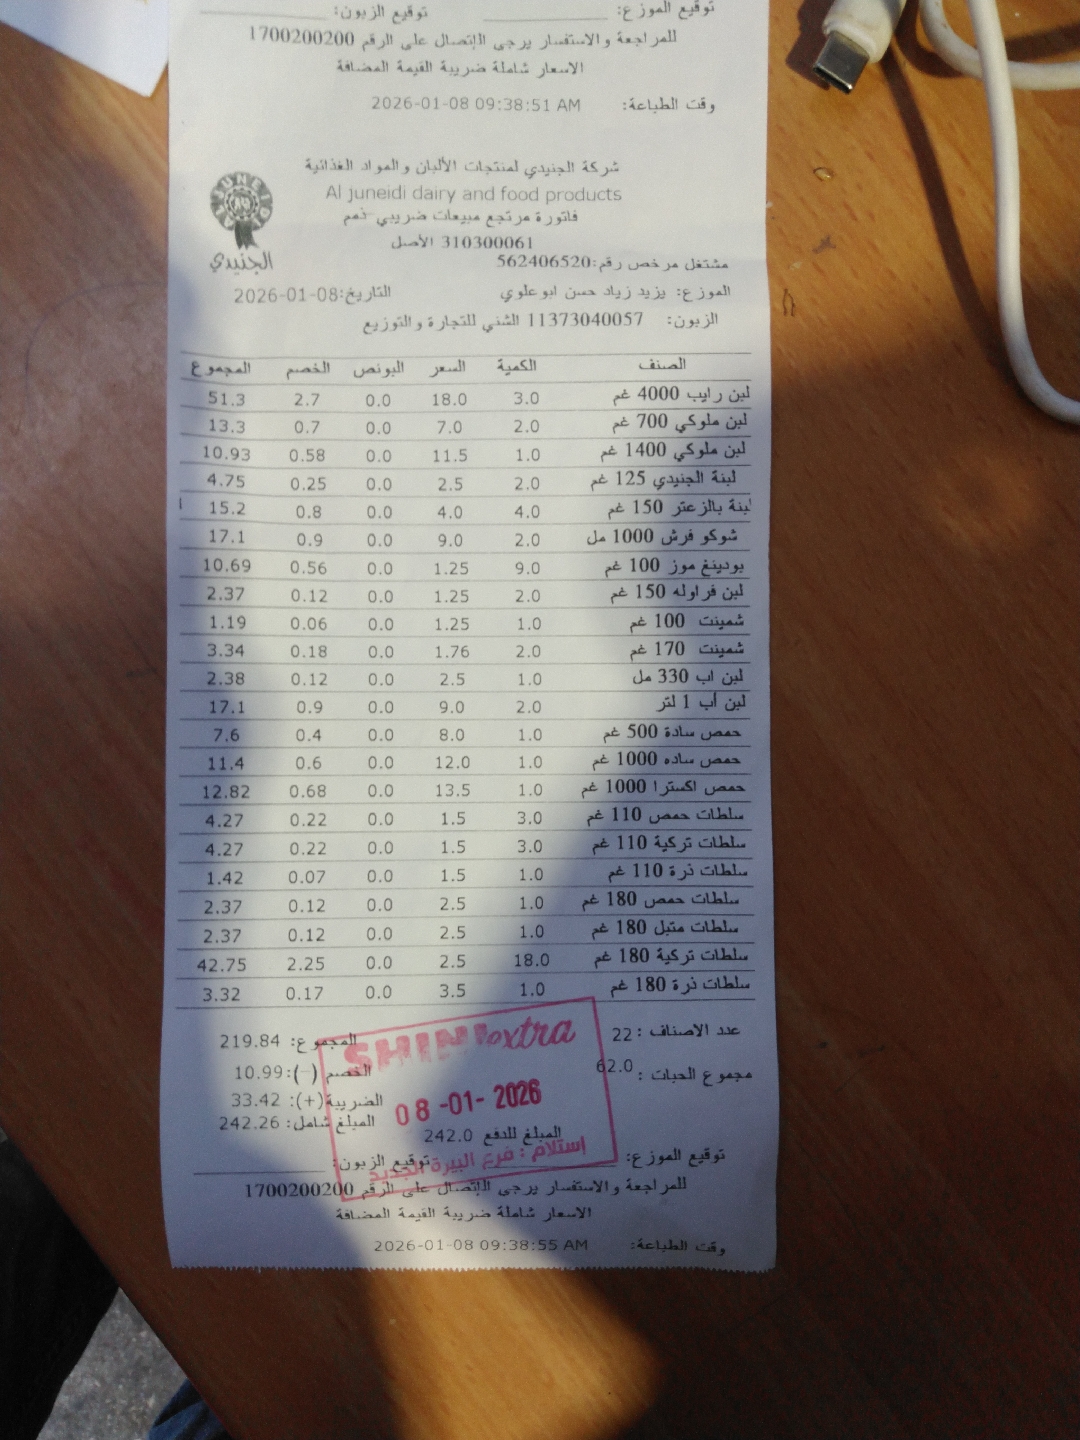 توقيع الموزع: توقيع الزبون:
للمراجعة والاستفسار يرجى الإتصال على الرقم 1700200200
الاسعار شاملة ضريبة القيمة المضافة
وقت الطباعة: 2026-01-08 09:38:51 AM
شركة الجنيدي لمنتجات الألبان والمواد الغذائية
Al juneidi dairy and food products
فاتورة مرتجع مبيعات ضريبي-ذمم
310300061 الأصل
الجنيدي
مشتغل مرخص رقم:562406520
الموزع: يزيد زياد حسن ابوعلوي التاريخ:2026-01-08
الزبون: 11373040057 الشني للتجارة والتوزيع
الصنف الكمية السعر البونص الخصم المجموع
لبن رايب 4000 غم 3.0 18.0 0.0 2.7 51.3
لبن ملوكي 700 غم 2.0 7.0 0.0 0.7 13.3
لبن ملوكي 1400 غم 1.0 11.5 0.0 0.58 10.93
لبنة الجنيدي 125 غم 2.0 2.5 0.0 0.25 4.75
لبنة بالزعتر 150 غم 4.0 4.0 0.0 0.8 15.2
شوكو فرش 1000 مل 2.0 9.0 0.0 0.9 17.1
بودينغ موز 100 غم 9.0 1.25 0.0 0.56 10.69
لبن فراوله 150 غم 2.0 1.25 0.0 0.12 2.37
شمينت 100 غم 1.0 1.25 0.0 0.06 1.19
شمينت 170 غم 2.0 1.76 0.0 0.18 3.34
لبن اب 330 مل 1.0 2.5 0.0 0.12 2.38
لبن أب 1 لتر 2.0 9.0 0.0 0.9 17.1
حمص سادة 500 غم 1.0 8.0 0.0 0.4 7.6
حمص ساده 1000 غم 1.0 12.0 0.0 0.6 11.4
حمص اكسترا 1000 غم 1.0 13.5 0.0 0.68 12.82
سلطات حمص 110 غم 3.0 1.5 0.0 0.22 4.27
سلطات تركية 110 غم 3.0 1.5 0.0 0.22 4.27
سلطات ذرة 110 غم 1.0 1.5 0.0 0.07 1.42
سلطات حمص 180 غم 1.0 2.5 0.0 0.12 2.37
سلطات متبل 180 غم 1.0 2.5 0.0 0.12 2.37
سلطات تركية 180 غم 18.0 2.5 0.0 2.25 42.75
سلطات ذرة 180 غم 1.0 3.5 0.0 0.17 3.32
عدد الاصناف : 22 المجموع: 219.84
مجموع الحبات : 62.0 الخصم (-):10.99
الضريبة(+): 33.42
المبلغ شامل: 242.26
المبلغ للدفع 242.0
SHINI extra
08-01-2026
إستلام : فرع البيرة الجديد
توقيع الموزع: توقيع الزبون:
للمراجعة والاستفسار يرجى الإتصال على الرقم 1700200200
الاسعار شاملة ضريبة القيمة المضافة
وقت الطباعة: 2026-01-08 09:38:55 AM